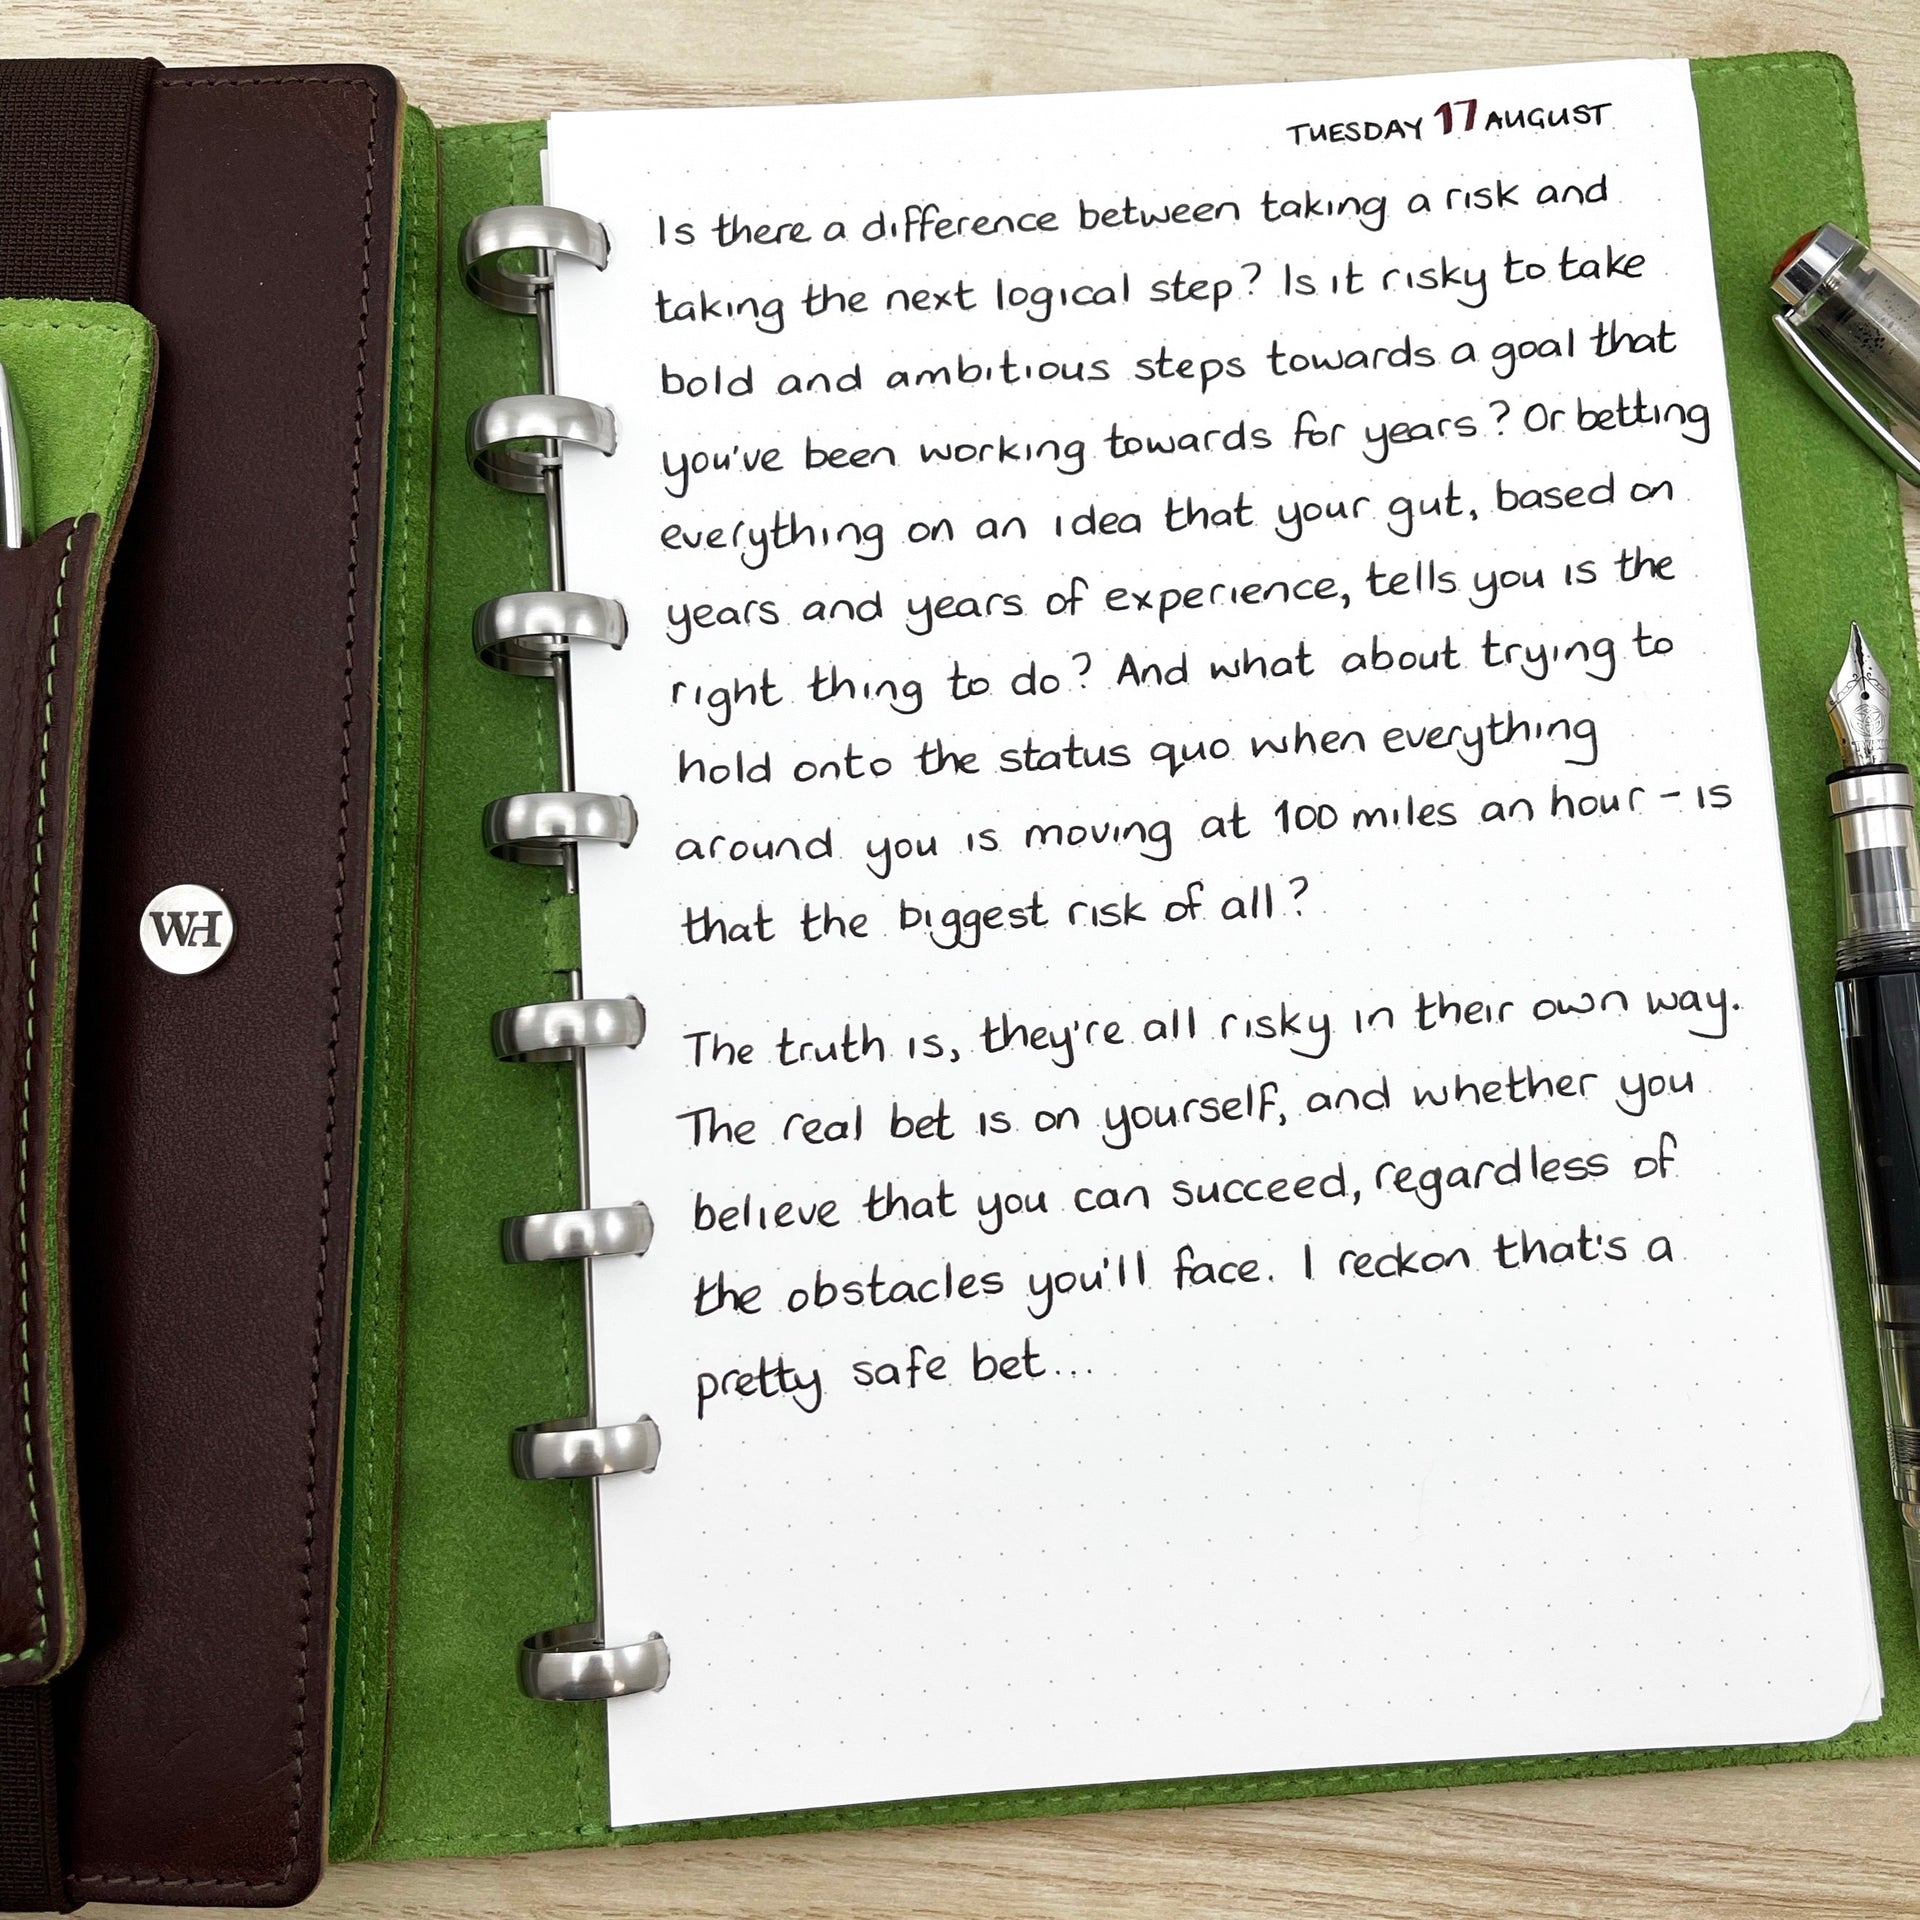 TUESDAY 17 AUGUST
Is there a difference between taking a risk and
taking the next logical step? Is it risky to take
bold and ambitious steps towards a goal that
you've been working towards for years? Or betting
everything on an idea that your gut, based on
years and years of experience, tells you is the
right thing to do? And what about trying to
hold onto the status quo when everything
around you is moving at 100 miles an hour - is
that the biggest risk of all?
The truth is, they're all risky in their own way.
The real bet is on yourself, and whether you
believe that you can succeed, regardless of
the obstacles you'll face. I reckon that's a
pretty safe bet...
WH